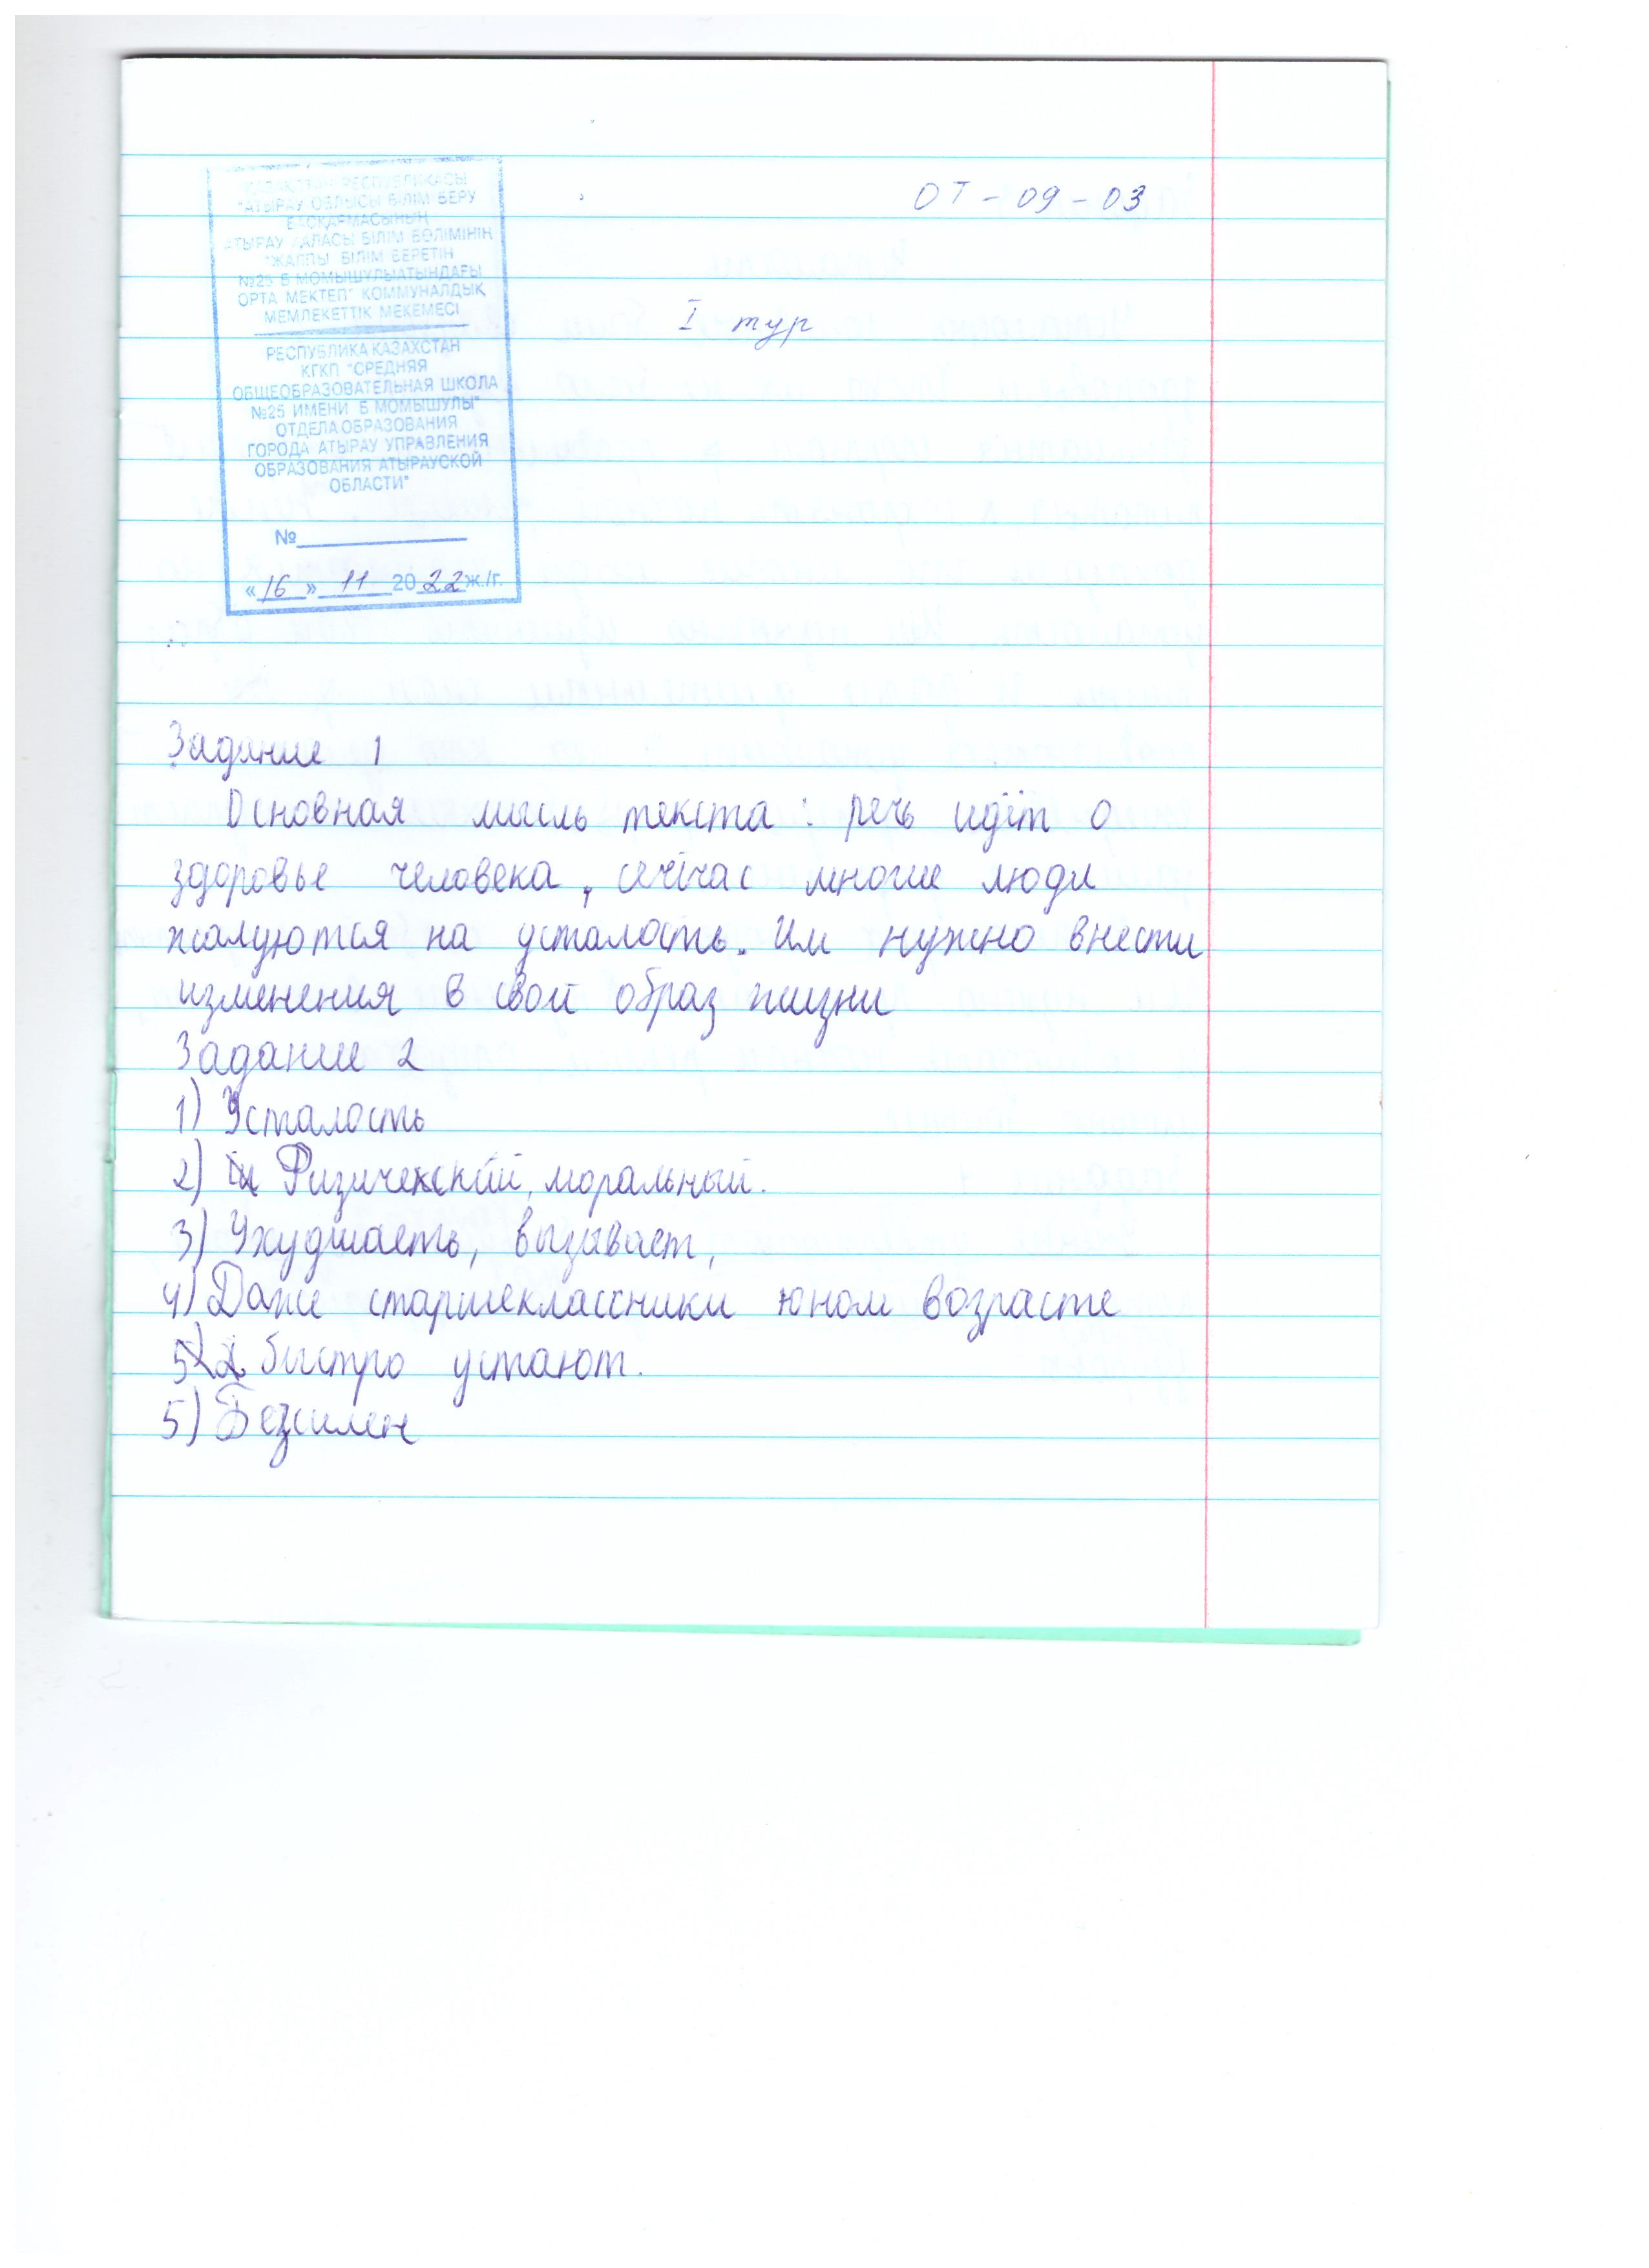 ҚАЗАҚСТАН РЕСПУБЛИКАСЫ
"АТЫРАУ ОБЛЫСЫ БІЛІМ БЕРУ
БАСҚАРМАСЫНЫҢ
АТЫРАУ ҚАЛАСЫ БІЛІМ БӨЛІМІНІҢ
"ЖАЛПЫ БІЛІМ БЕРЕТІН
№25 Б МОМЫШУЛЫАТЫНДАҒЫ
ОРТА МЕКТЕП" КОММУНАЛДЫҚ
МЕМЛЕКЕТТІК МЕКЕМЕСІ
РЕСПУБЛИКА КАЗАХСТАН
КГКП "СРЕДНЯЯ
ОБЩЕОБРАЗОВАТЕЛЬНАЯ ШКОЛА
№25 ИМЕНИ Б МОМЫШУЛЫ"
ОТДЕЛА ОБРАЗОВАНИЯ
ГОРОДА АТЫРАУ УПРАВЛЕНИЯ
ОБРАЗОВАНИЯ АТЫРАУСКОЙ
ОБЛАСТИ"
№
«16» 11 2022 ж./г.
ОТ - 09 - 03
I тур
Задание 1
Основная мысль текста: речь идёт о
здоровье человека, сейчас многие люди
жалуются на усталость. Им нужно внести
изменения в свой образ жизни
Задание 2
1) Усталость
2) Физический, моральный.
3) Ухудшаеть, вызывает,
4) Даже старшеклассники юном возрасте
быстро устают.
5) Безсилен